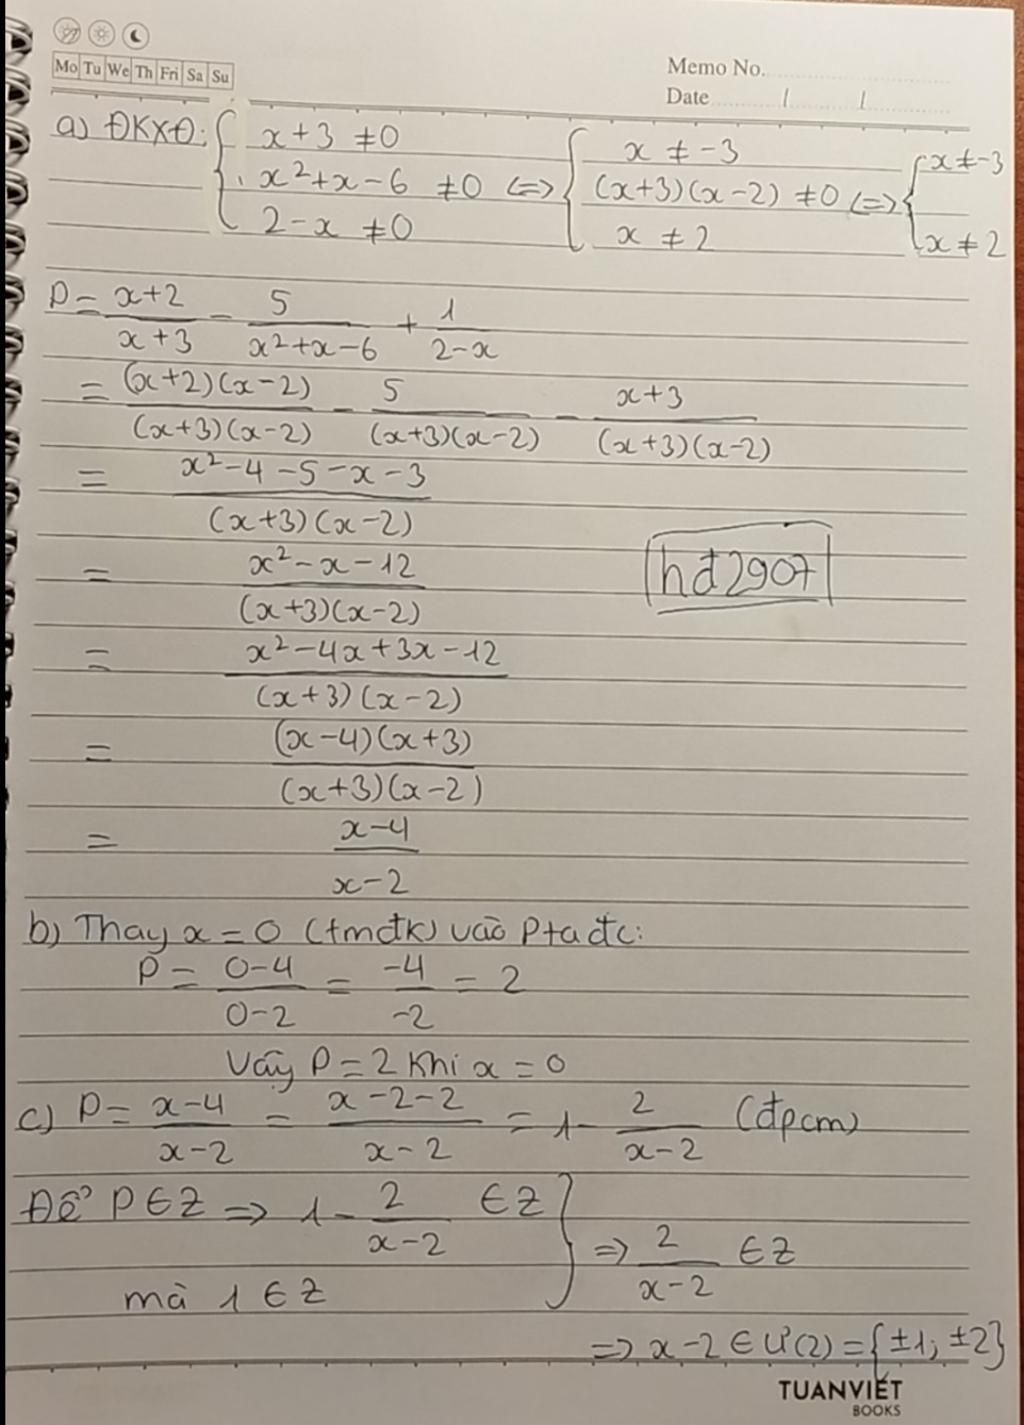 Mo Tu We Th Fri Sa Su
Memo No.
Date / /
a) ĐKXĐ: { x + 3 ≠ 0 ; x² + x - 6 ≠ 0 ; 2 - x ≠ 0 <=> { x ≠ -3 ; (x+3)(x-2) ≠ 0 ; x ≠ 2 <=> { x ≠ -3 ; x ≠ 2
P = (x+2)/(x+3) - 5/(x²+x-6) + 1/(2-x)
= (x+2)(x-2)/(x+3)(x-2) - 5/(x+3)(x-2) - (x+3)/(x+3)(x-2)
= (x² - 4 - 5 - x - 3)/(x+3)(x-2)
= (x² - x - 12)/(x+3)(x-2)
hđ2907
= (x² - 4x + 3x - 12)/(x+3)(x-2)
= (x-4)(x+3)/(x+3)(x-2)
= (x-4)/(x-2)
b) Thay x = 0 (tmđk) vào P ta đc:
P = (0-4)/(0-2) = -4/-2 = 2
Vậy P = 2 khi x = 0
c) P = (x-4)/(x-2) = (x-2-2)/(x-2) = 1 - 2/(x-2) (đpcm)
Để P ∈ Z => 1 - 2/(x-2) ∈ Z
mà 1 ∈ Z } => 2/(x-2) ∈ Z
=> x-2 ∈ Ư(2) = {±1; ±2}
TUANVIET
BOOKS